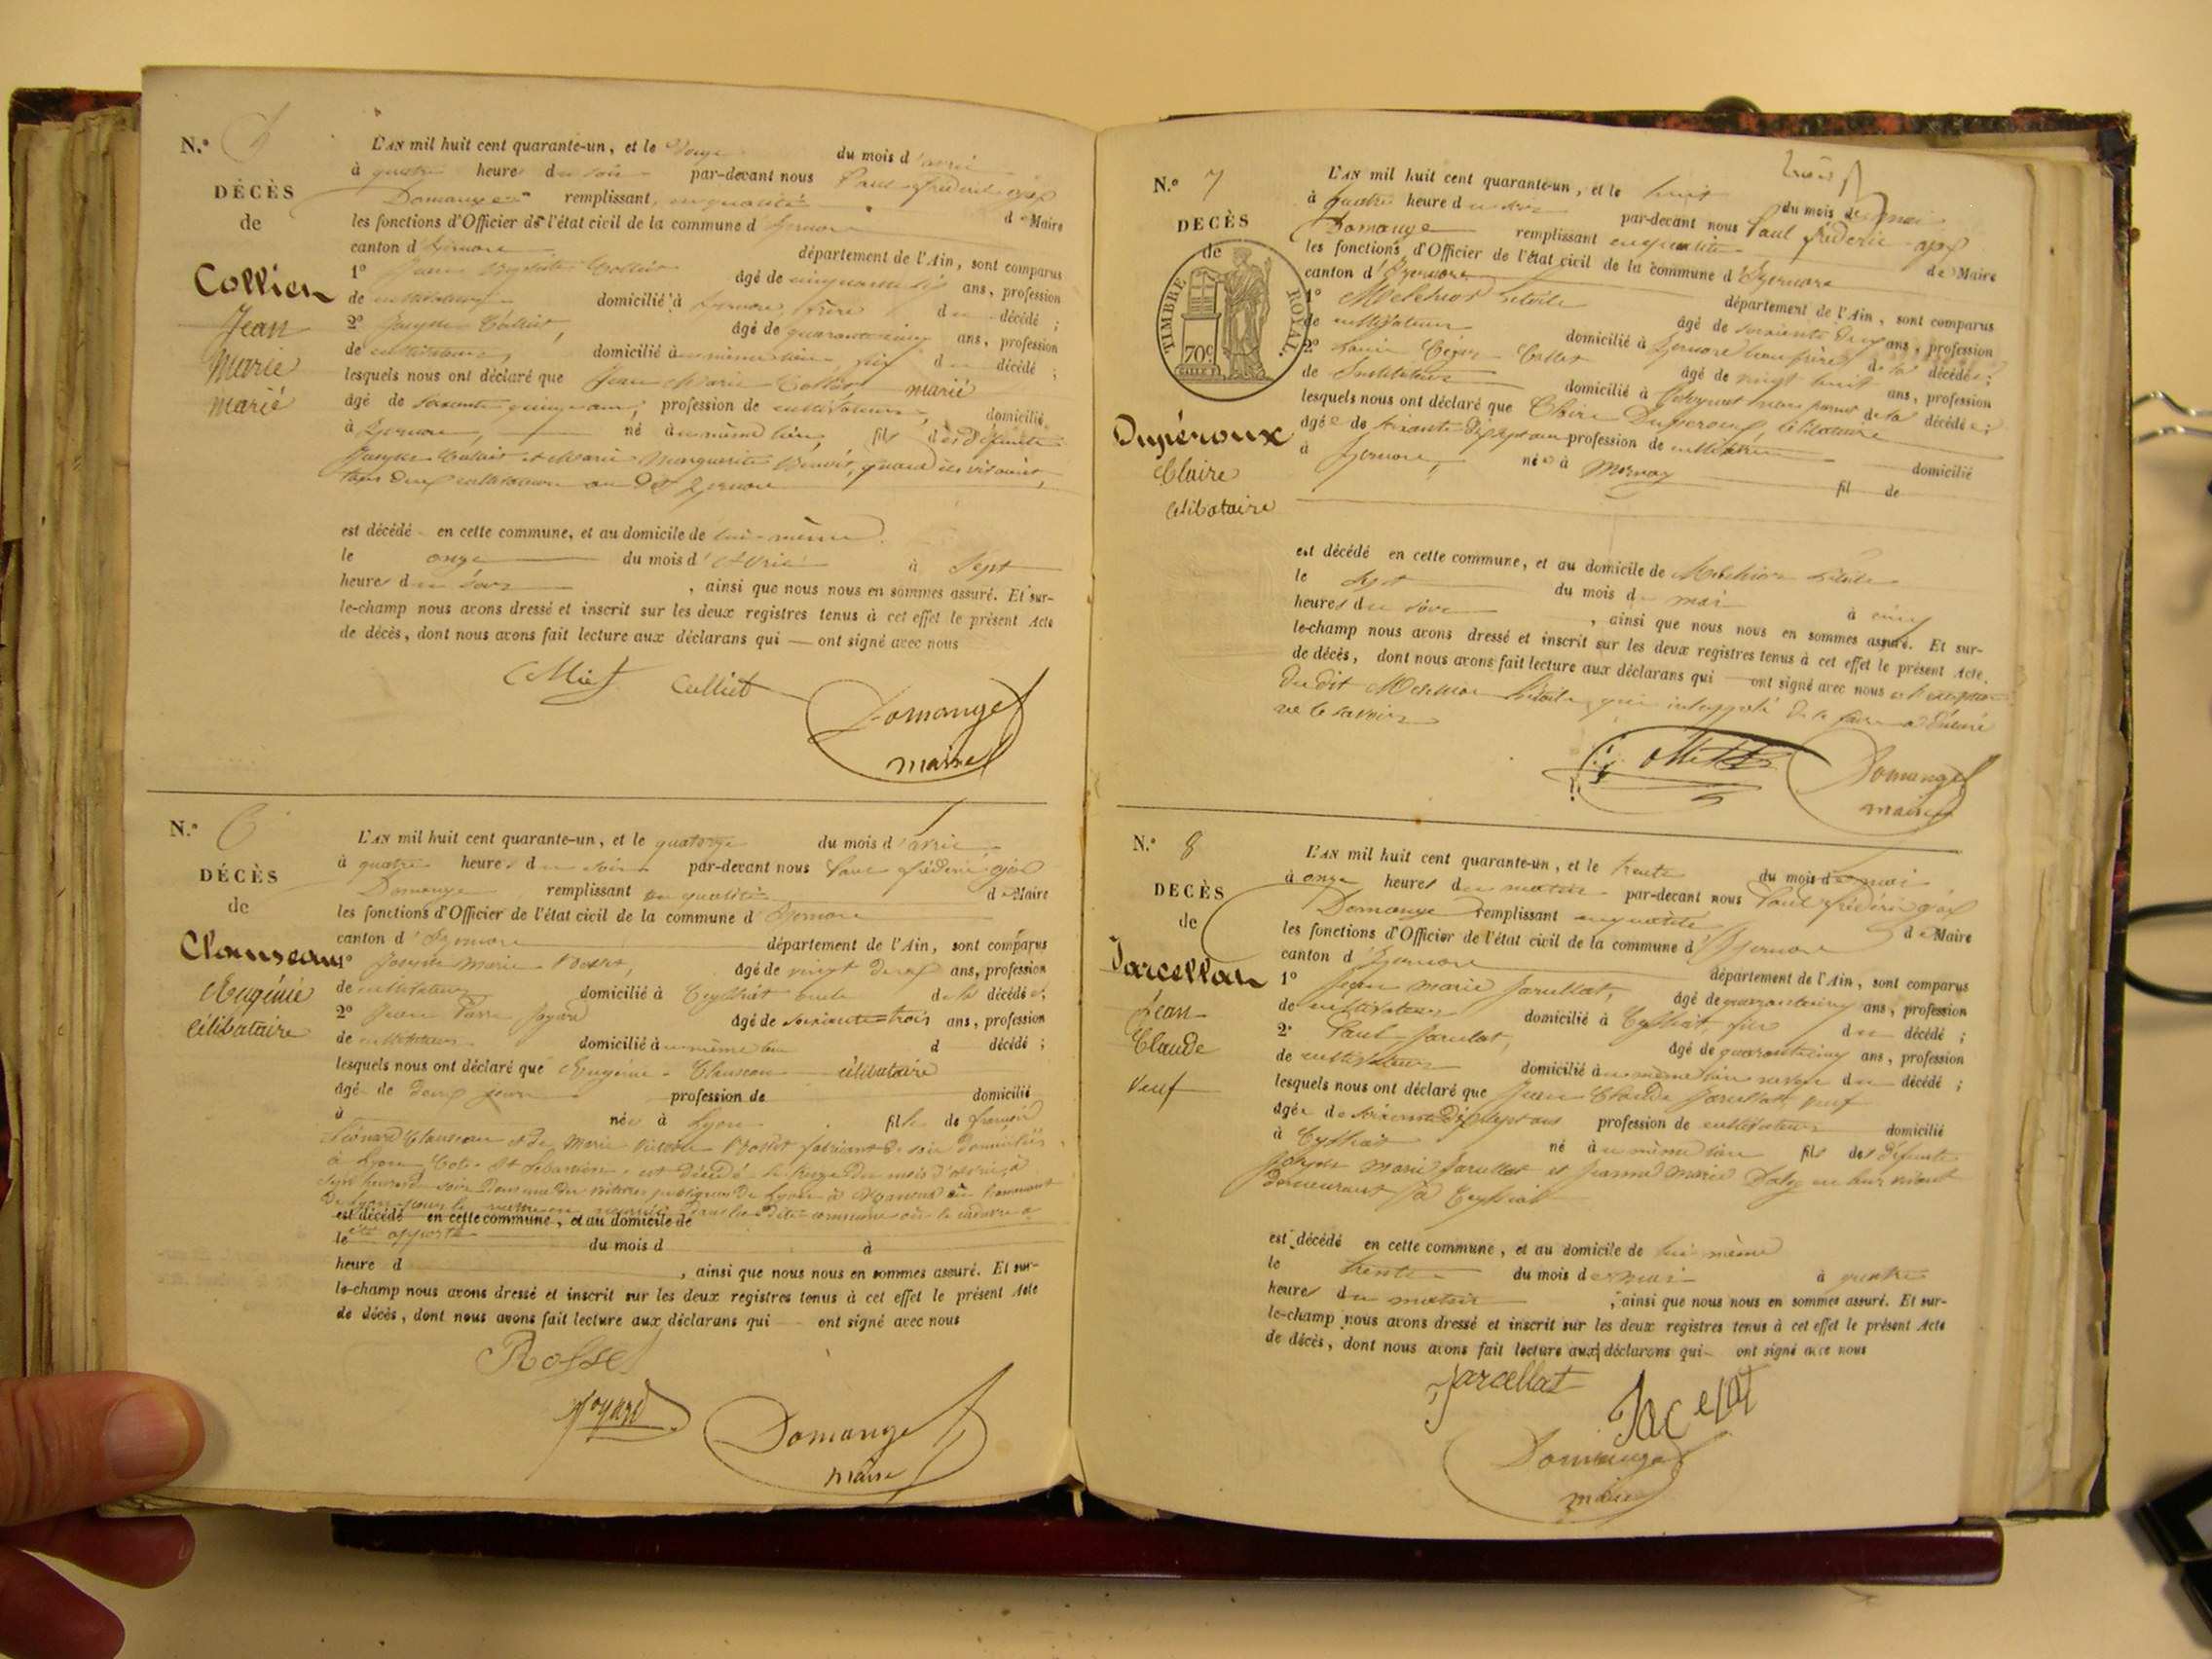 N.º 5
DÉCÈS
de
Collien
Jean
Marie
marié
L'AN mil huit cent quarante-un, et le du mois d'avril
à quatre heures du soir par-devant nous Paul fréderic ajax
Domange remplissant en qualité de Maire
les fonctions d'Officier de l'état civil de la commune d'Izernore
canton d'Izernore département de l'Ain, sont comparus
1º Jean Baptiste Colliet âgé de cinquante six ans, profession
de cultivateur domicilié à Izernore, frère du décédé;
2º Joseph Colliet, âgé de quarante cinq ans, profession
de cultivateur, domicilié à même lieu, du décédé;
lesquels nous ont déclaré que Jean Marie Colliet marié
âgé de soixante quinze ans, profession de cultivateur, domicilié
à Izernore, né au même lieu, fils des défunts
Joseph Colliet et Marie Marguerite Benoit, quand ils vivaient,
tous deux cultivateurs au dit Izernore
est décédé en cette commune, et au domicile de lui-même
le onze du mois d'Avril à Sept
heures du soir, ainsi que nous nous en sommes assuré. Et sur-
le-champ nous avons dressé et inscrit sur les deux registres tenus à cet effet le présent Acte
de décès, dont nous avons fait lecture aux déclarans qui — ont signé avec nous
Colliet Domange
maire
N.º 6
DÉCÈS
de
Clauseau
Eugénie
célibataire
L'AN mil huit cent quarante-un, et le quatorze du mois d'avril
à quatre heures du soir par-devant nous Paul fréderic ajax
Domange remplissant en qualité de Maire
les fonctions d'Officier de l'état civil de la commune d'Izernore
canton d'Izernore département de l'Ain, sont comparus
1º Joseph Marie Rosset, âgé de vingt deux ans, profession
de cultivateur domicilié à Ceyssiat oncle de la décédée;
2º Jean Pierre Joyard âgé de soixante-trois ans, profession
de cultivateur domicilié au même lieu d décédé;
lesquels nous ont déclaré que Eugénie Clauseau célibataire
âgé de deux jours profession de domicilié
à née à Lyon fille de françois
Léonard Clauseau et de Marie Rosset fabricant de soie domiciliés
à Lyon Cote St Sébastien, est décédé le treize du mois d'avril à
sept heures du soir dans une des voitures publiques de Lyon à
dite commune où le cadavre a
est décédé en cette commune, et au domicile de
le été apporté du mois d à
heure d , ainsi que nous nous en sommes assuré. Et sur-
le-champ nous avons dressé et inscrit sur les deux registres tenus à cet effet le présent Acte
de décès, dont nous avons fait lecture aux déclarans qui ont signé avec nous
Rosset
Joyard
Domange
maire
N.º 7
DÉCÈS
de
TIMBRE ROYAL.
70c
Dupéroux
Claire
célibataire
L'AN mil huit cent quarante-un, et le huit du mois de mai
à quatre heure du soir par-devant nous Paul fréderic ajax
Domange remplissant en qualité de Maire
les fonctions d'Officier de l'état civil de la commune d'Izernore
canton d'Izernore département de l'Ain, sont comparus
1º Melchior âgé de soixante deux ans, profession
de cultivateur domicilié à Izernore beau frère de la décédée;
2º Collet âgé de vingt huit ans, profession
de Instituteur domicilié à non parent de la décédée;
lesquels nous ont déclaré que Claire Duperoux célibataire
âgée de soixante dix sept ans profession de domicilié
à Izernore, née à Mornay fil de
est décédé en cette commune, et au domicile de Melchior
le Sept du mois de mai à cinq
heures du soir, ainsi que nous nous en sommes assuré. Et sur-
le-champ nous avons dressé et inscrit sur les deux registres tenus à cet effet le présent Acte.
de décès, dont nous avons fait lecture aux déclarans qui — ont signé avec nous à l'exception
du dit Melchior qui interpellé de le faire a déclaré
ne le savoir
Domange
maire
N.º 8
DÉCÈS
de
Jarcellat
Jean
Claude
Veuf
L'AN mil huit cent quarante-un, et le trente du mois de mai
à onze heures du matin par-devant nous Paul fréderic ajax
Domange remplissant en qualité de Maire
les fonctions d'Officier de l'état civil de la commune d'Izernore
canton d'Izernore département de l'Ain, sont comparus
1º Jean Marie Jarcellat, âgé de quarante cinq ans, profession
de cultivateur domicilié à Ceyssiat fils du décédé;
2º Paul Jarcellat, âgé de quarante cinq ans, profession
de cultivateur domicilié au même lieu neveu du décédé;
lesquels nous ont déclaré que Jean Claude Jarcellat, veuf
âgé de soixante dix sept ans profession de cultivateur domicilié
à Ceyssiat né au même lieu fils des défunts
Joseph Marie Jarcellat et Jeanne Marie en leur vivant
demeurant à Ceyssiat
est décédé en cette commune, et au domicile de lui même
le trente du mois de mai à quatre
heures du matin, ainsi que nous nous en sommes assuré. Et sur-
le-champ nous avons dressé et inscrit sur les deux registres tenus à cet effet le présent Acte
de décès, dont nous avons fait lecture aux déclarans qui ont signé avec nous
Jarcellat
Domange
maire